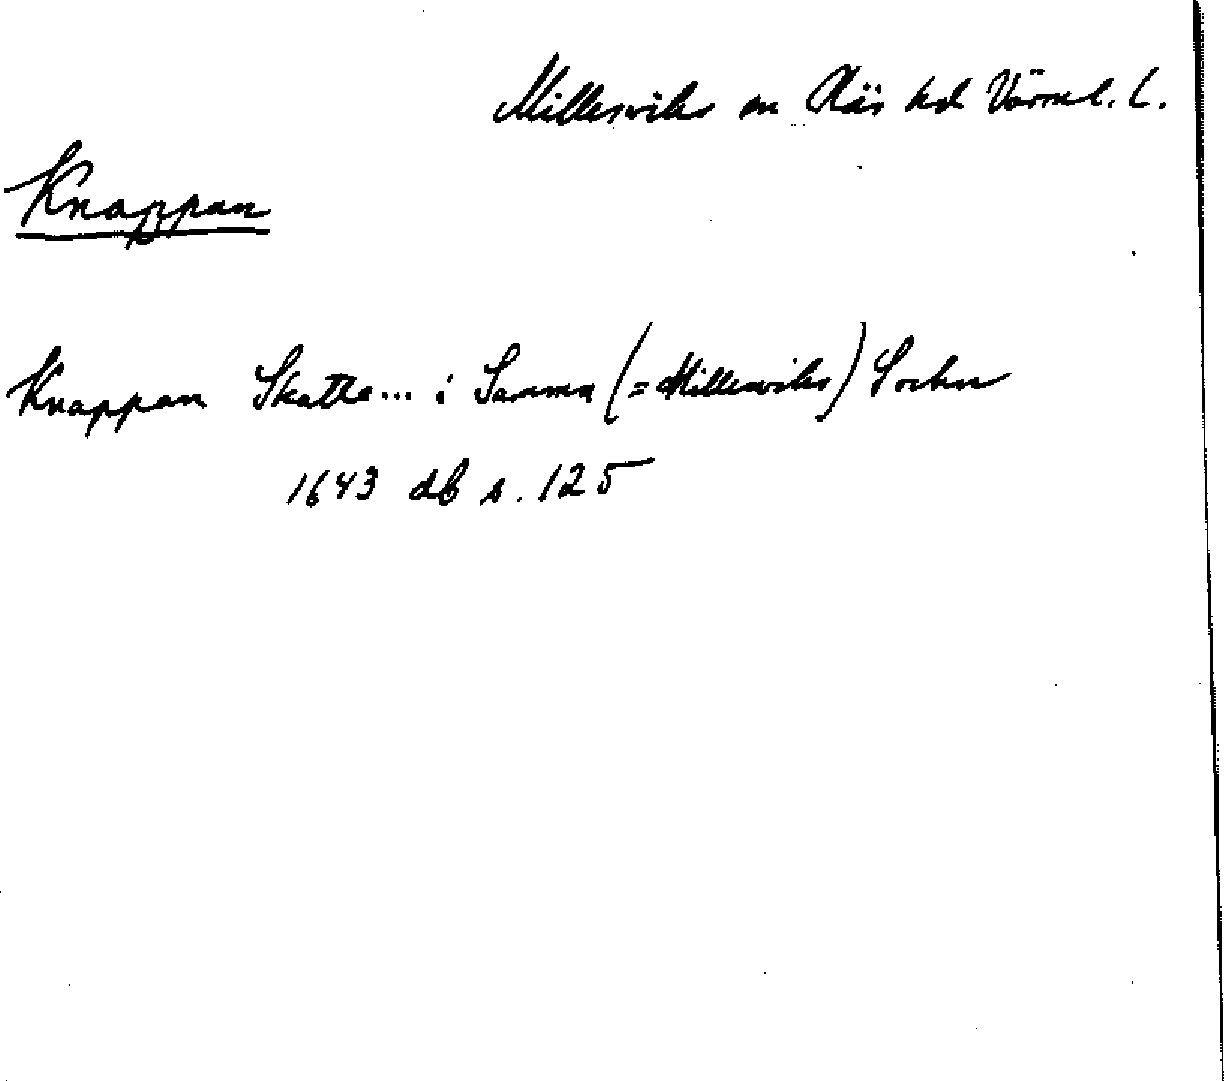 Millesviks sn Näs hd Värml. l.
Knappan
Knappan Skatte... i Samma (= Millesviks) Sochn
1643 db s. 125